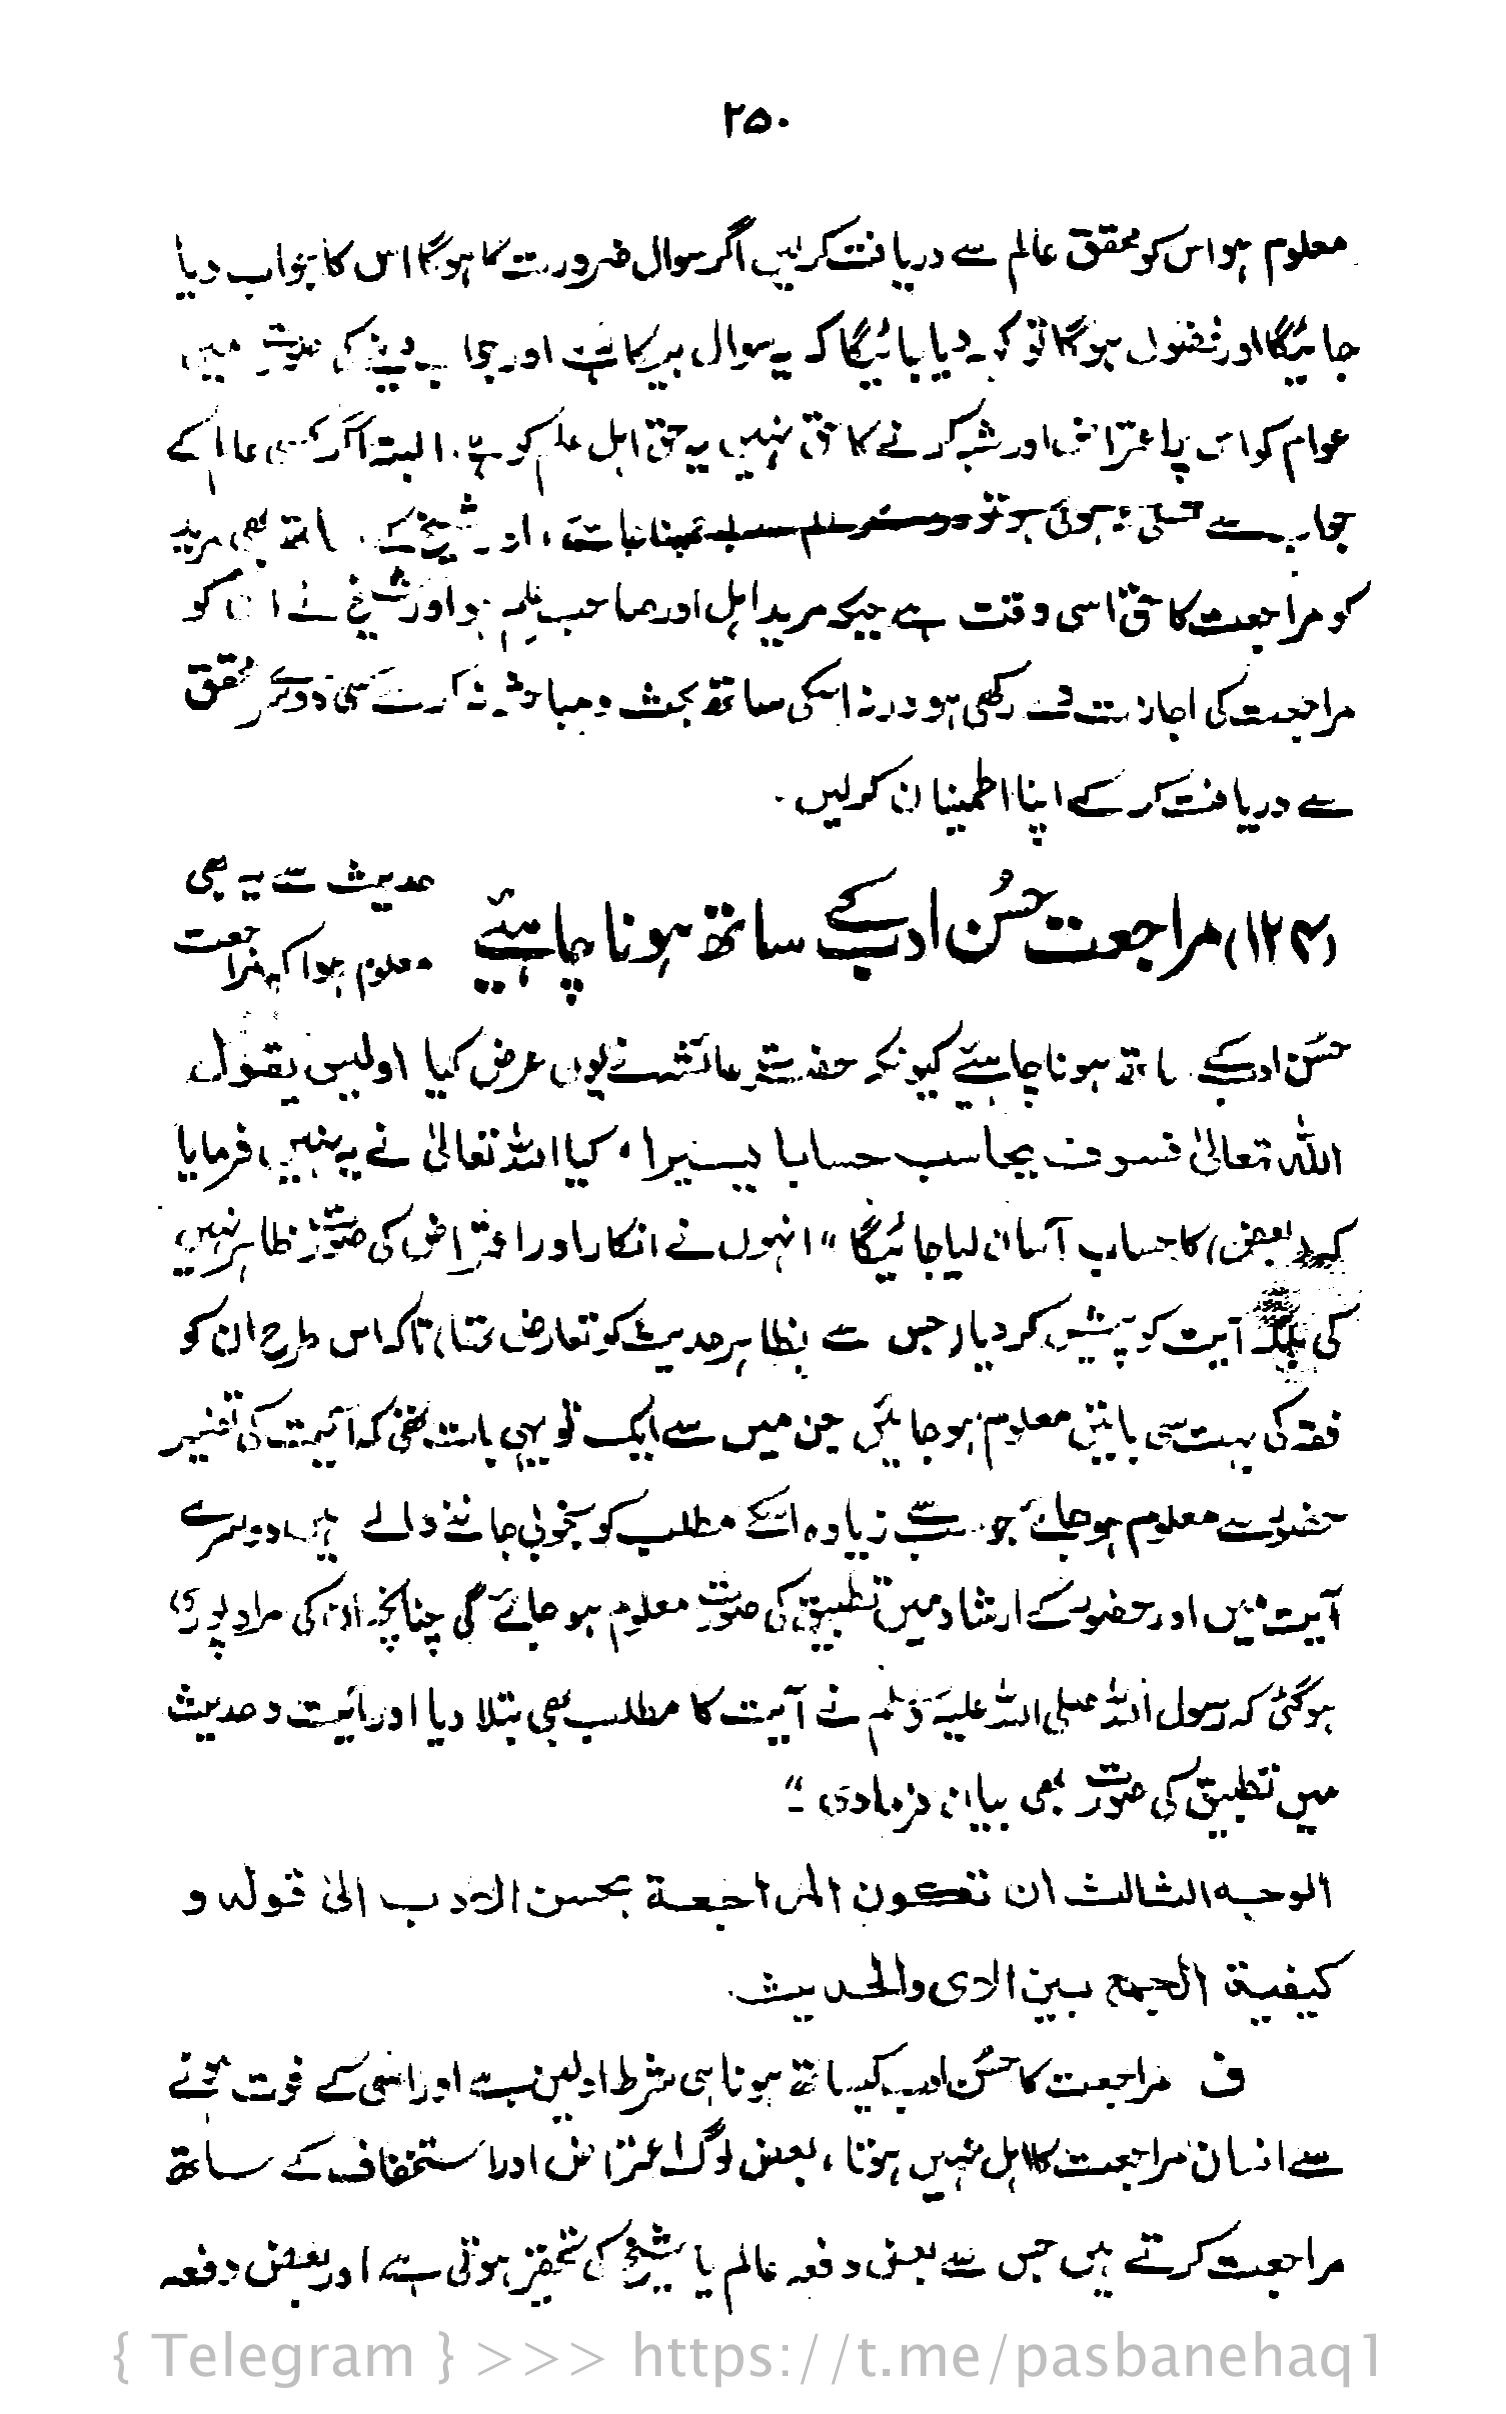 ۲۵۰
معلوم ہو اس کو محقق عالم سے دریافت کرلیں اگر سوال ضرورت کا ہوگا اس کا جواب دیا
جائیگا اور فضول ہوگا تو کہہ دیا جائیگا کہ یہ سوال بیکار ہے اور جواب دینے کی صورت میں
عوام کو اس پر اعتراض اور شبہ کرنے کا حق نہیں یہ حق اہل علم کو ہے، البتہ اگر کسی عالم کے
جواب سے تسلی نہ ہوئی ہو تو دوسرے عالم سے ، اور شیخ کے ساتھ بھی مرید
کو مراجعت کا حق اسی وقت ہے جبکہ مرید اہل اور صاحب علم ہو اور شیخ نے ان کو
مراجعت کی اجازت دے رکھی ہو ورنہ اسکی ساتھ بحث و مباحثہ نہ کرے کسی دوسرے محقق
سے دریافت کر کے اپنا اطمینان کرلیں۔
(۱۲۴) مراجعت حسُن ادب کے ساتھ ہونا چاہئیے
عدیث سے یہ بھی
معلوم ہوا کہ مراجعت
حسُن ادب کے ساتھ ہونا چاہیئے کیونکہ حضرت عائشہ نے یوں عرض کیا اولیس یقول
اللہ تعالیٰ فسوف یحاسب حسابا یسیرا ، کیا اللہ تعالیٰ نے یہ نہیں فرمایا
کہ (بعض) کا حساب آسان لیا جائیگا " انہوں نے انکار اور اعتراض کی صورت ظاہر نہیں
کی بلکہ آیت کو پیش کر دیا (جس سے بظاہر حدیث کو تعارض تھا) تاکہ اس طرح ان کو
فقہ کی بہت سی باتیں معلوم ہو جائیں جن میں سے ایک تو یہی بات تھی کہ آیت کی تفسیر
حضورؐ سے معلوم ہو جائے جو سب سے زیادہ اسکے مطلب کو بخوبی جاننے والے ہیں دوسرے
آیت میں اور حضورؐ کے ارشاد میں تطبیق کی صورت معلوم ہو جائے گی چنانچہ ان کی مراد پوری
ہوگئی کہ رسول اللہ صلی اللہ علیہ وسلم نے آیت کا مطلب بھی بتلا دیا اور آیت و حدیث
میں تطبیق کی صورت بھی بیان فرمادی ۔"
الوجہ الثالث ان تکون المراجعة بحسن الادب الیٰ قوله و
کیفیة الجمع بین الای والحدیث۔
ف مراجعت کا حسُن ادب کیساتھ ہونا ہی شرط اولین ہے اور اسی کے فوت ہونے
سے انسان مراجعت کا اہل نہیں ہوتا ، بعض لوگ اعتراض اور استخفاف کے ساتھ
مراجعت کرتے ہیں جس سے بعض دفعہ عالم یا شیخ کی تحقیر ہوتی ہے اور بعض دفعہ
{ Telegram } >>> https://t.me/pasbanehaq1